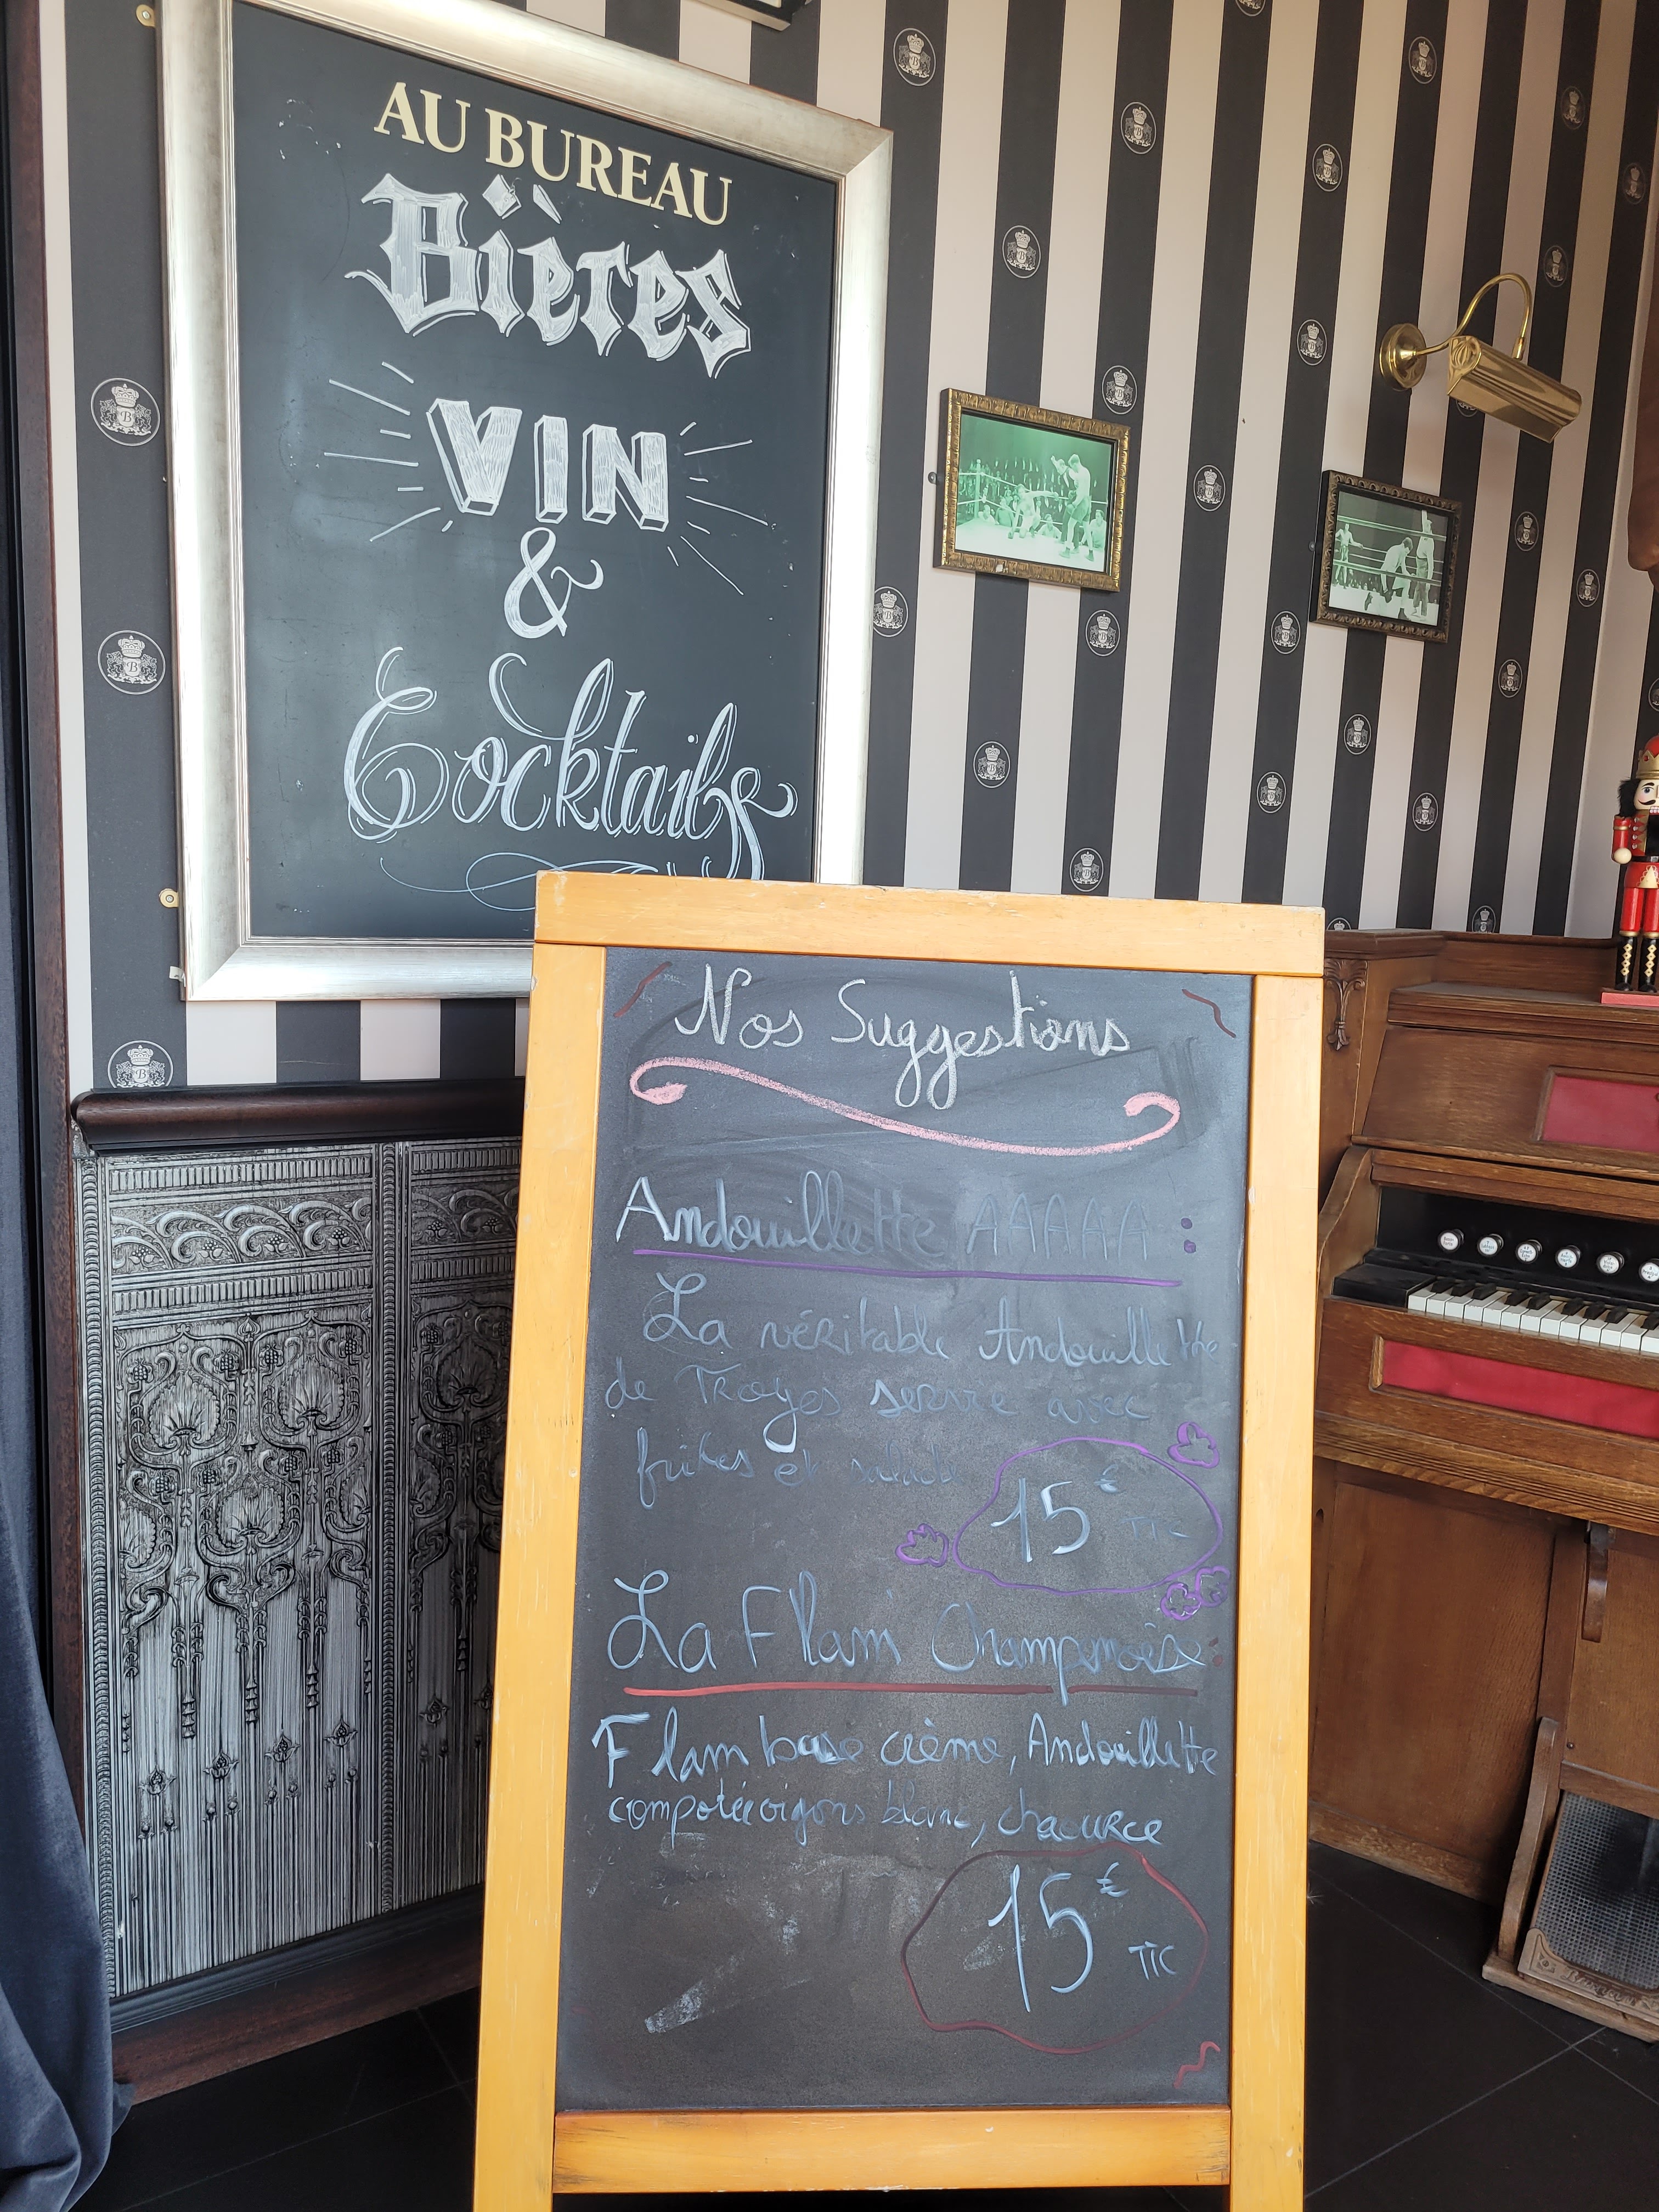 AU BUREAU
Bières
VIN
&
Cocktails
Nos Suggestions
Andouillette AAAAA :
La véritable Andouillette
de Troyes servie avec
frites et salade
15 €
TTC
La Flam' Champenoise :
Flam base crème, Andouillette
compotée oignons blanc, chaource
15 €
TTC